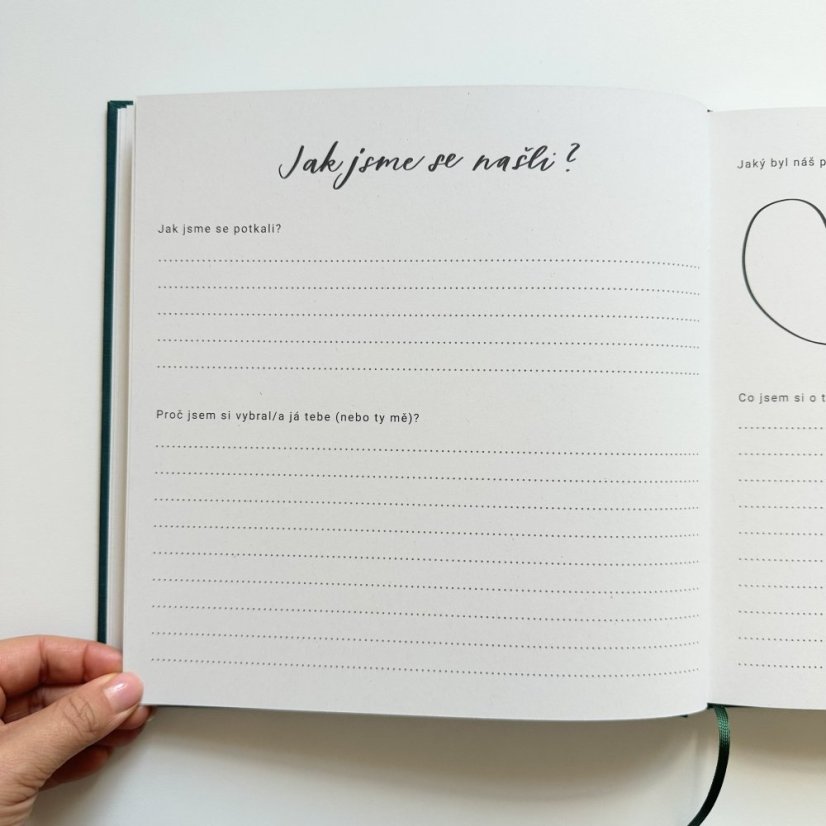 Jak jsme se našli?
Jak jsme se potkali?
Proč jsem si vybral/a já tebe (nebo ty mě)?
Jaký byl náš p
Co jsem si o t